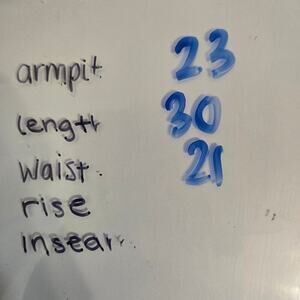 armpit 23
length 30
waist 21
rise
insea